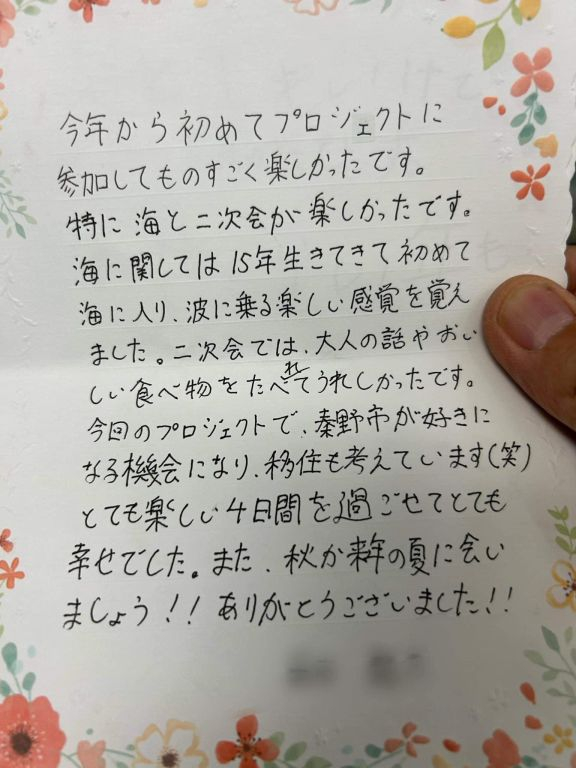 今年から初めてプロジェクトに
参加してものすごく楽しかったです。
特に海と二次会が楽しかったです。
海に関しては15年生きてきて初めて
海に入り、波に乗る楽しい感覚を覚え
ました。二次会では、大人の話やおい
しい食べ物をたべれてうれしかったです。
今回のプロジェクトで、秦野市が好きに
なる機会になり、移住も考えています(笑)
とても楽しい4日間を過ごせてとても
幸せでした。また、秋か来年の夏に会い
ましょう!!ありがとうございました!!